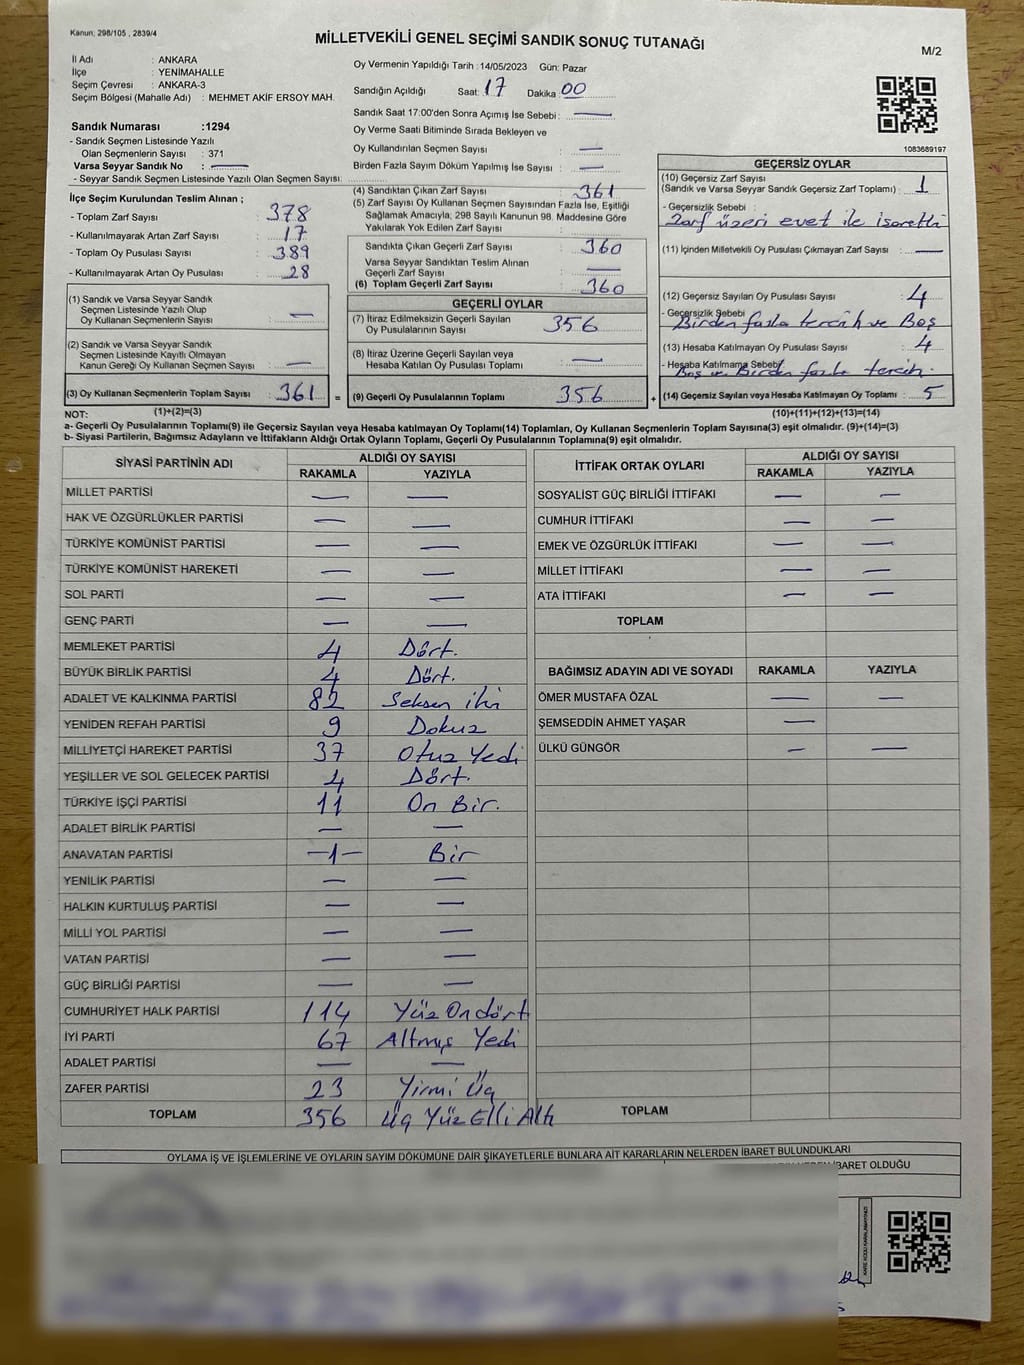 Kanun; 298/105 , 2839/4
MİLLETVEKİLİ GENEL SEÇİMİ SANDIK SONUÇ TUTANAĞI
M/2
İl Adı : ANKARA
İlçe : YENİMAHALLE
Seçim Çevresi : ANKARA-3
Seçim Bölgesi (Mahalle Adı) : MEHMET AKİF ERSOY MAH.
Oy Vermenin Yapıldığı Tarih : 14/05/2023 Gün: Pazar
Sandığın Açıldığı Saat: 17 Dakika: 00
Sandık Saat 17:00'den Sonra Açımış İse Sebebi: —
Oy Verme Saati Bitiminde Sırada Bekleyen ve
Oy Kullandırılan Seçmen Sayısı : —
Birden Fazla Sayım Döküm Yapılmış İse Sayısı : —
1083689197
Sandık Numarası :1294
- Sandık Seçmen Listesinde Yazılı
Olan Seçmenlerin Sayısı : 371
Varsa Seyyar Sandık No : —
- Seyyar Sandık Seçmen Listesinde Yazılı Olan Seçmen Sayısı:
İlçe Seçim Kurulundan Teslim Alınan ;
- Toplam Zarf Sayısı : 378
- Kullanılmayarak Artan Zarf Sayısı : 17
- Toplam Oy Pusulası Sayısı : 389
- Kullanılmayarak Artan Oy Pusulası : 28
(1) Sandık ve Varsa Seyyar Sandık
Seçmen Listesinde Yazılı Olup
Oy Kullanan Seçmenlerin Sayısı : —
(2) Sandık ve Varsa Seyyar Sandık
Seçmen Listesinde Kayıtlı Olmayan
Kanun Gereği Oy Kullanan Seçmen Sayısı : —
(3) Oy Kullanan Seçmenlerin Toplam Sayısı : 361
=
(4) Sandıktan Çıkan Zarf Sayısı : 361
(5) Zarf Sayısı Oy Kullanan Seçmen Sayısından Fazla İse, Eşitliği
Sağlamak Amacıyla; 298 Sayılı Kanunun 98. Maddesine Göre
Yakılarak Yok Edilen Zarf Sayısı :
Sandıkta Çıkan Geçerli Zarf Sayısı : 360
Varsa Seyyar Sandıktan Teslim Alınan
Geçerli Zarf Sayısı : —
(6) Toplam Geçerli Zarf Sayısı : 360
GEÇERLİ OYLAR
(7) İtiraz Edilmeksizin Geçerli Sayılan
Oy Pusulalarının Sayısı : 356
(8) İtiraz Üzerine Geçerli Sayılan veya
Hesaba Katılan Oy Pusulası Toplamı : —
(9) Geçerli Oy Pusulalarının Toplamı : 356
+
GEÇERSİZ OYLAR
(10) Geçersiz Zarf Sayısı
(Sandık ve Varsa Seyyar Sandık Geçersiz Zarf Toplamı) : 1
- Geçersizlik Sebebi :
Zarf üzeri evet ile işaretli
(11) İçinden Milletvekili Oy Pusulası Çıkmayan Zarf Sayısı : —
(12) Geçersiz Sayılan Oy Pusulası Sayısı : 4
- Geçersizlik Sebebi :
Birden fazla tercih ve Boş
(13) Hesaba Katılmayan Oy Pusulası Sayısı : 4
- Hesaba Katılmama Sebebi
Boş ve Birden fazla tercih.
(14) Geçersiz Sayılan veya Hesaba Katılmayan Oy Toplamı : 5
NOT: (1)+(2)=(3) (10)+(11)+(12)+(13)=(14)
a- Geçerli Oy Pusulalarının Toplamı(9) ile Geçersiz Sayılan veya Hesaba katılmayan Oy Toplamı(14) Toplamları, Oy Kullanan Seçmenlerin Toplam Sayısına(3) eşit olmalıdır. (9)+(14)=(3)
b- Siyasi Partilerin, Bağımsız Adayların ve İttifakların Aldığı Ortak Oyların Toplamı, Geçerli Oy Pusulalarının Toplamına(9) eşit olmalıdır.
SİYASİ PARTİNİN ADI ALDIĞI OY SAYISI
RAKAMLA YAZIYLA
MİLLET PARTİSİ — —
HAK VE ÖZGÜRLÜKLER PARTİSİ — —
TÜRKİYE KOMÜNİST PARTİSİ — —
TÜRKİYE KOMÜNİST HAREKETİ — —
SOL PARTİ — —
GENÇ PARTİ — —
MEMLEKET PARTİSİ 4 Dört.
BÜYÜK BİRLİK PARTİSİ 4 Dört.
ADALET VE KALKINMA PARTİSİ 82 Seksen iki
YENİDEN REFAH PARTİSİ 9 Dokuz
MİLLİYETÇİ HAREKET PARTİSİ 37 Otuz Yedi
YEŞİLLER VE SOL GELECEK PARTİSİ 4 Dört.
TÜRKİYE İŞÇİ PARTİSİ 11 On Bir.
ADALET BİRLİK PARTİSİ — —
ANAVATAN PARTİSİ —1— Bir
YENİLİK PARTİSİ — —
HALKIN KURTULUŞ PARTİSİ — —
MİLLİ YOL PARTİSİ — —
VATAN PARTİSİ — —
GÜÇ BİRLİĞİ PARTİSİ — —
CUMHURİYET HALK PARTİSİ 114 Yüz Ondört
İYİ PARTİ 67 Altmış Yedi
ADALET PARTİSİ — —
ZAFER PARTİSİ 23 Yirmi Üç
TOPLAM 356 Üç Yüz Elli Altı
İTTİFAK ORTAK OYLARI ALDIĞI OY SAYISI
RAKAMLA YAZIYLA
SOSYALİST GÜÇ BİRLİĞİ İTTİFAKI — —
CUMHUR İTTİFAKI — —
EMEK VE ÖZGÜRLÜK İTTİFAKI — —
MİLLET İTTİFAKI — —
ATA İTTİFAKI — —
TOPLAM
BAĞIMSIZ ADAYIN ADI VE SOYADI RAKAMLA YAZIYLA
ÖMER MUSTAFA ÖZAL — —
ŞEMSEDDİN AHMET YAŞAR —
ÜLKÜ GÜNGÖR — —
TOPLAM
OYLAMA İŞ VE İŞLEMLERİNE VE OYLARIN SAYIM DÖKÜMÜNE DAİR ŞİKAYETLERLE BUNLARA AİT KARARLARIN NELERDEN İBARET BULUNDUKLARI
İBARET OLDUĞU